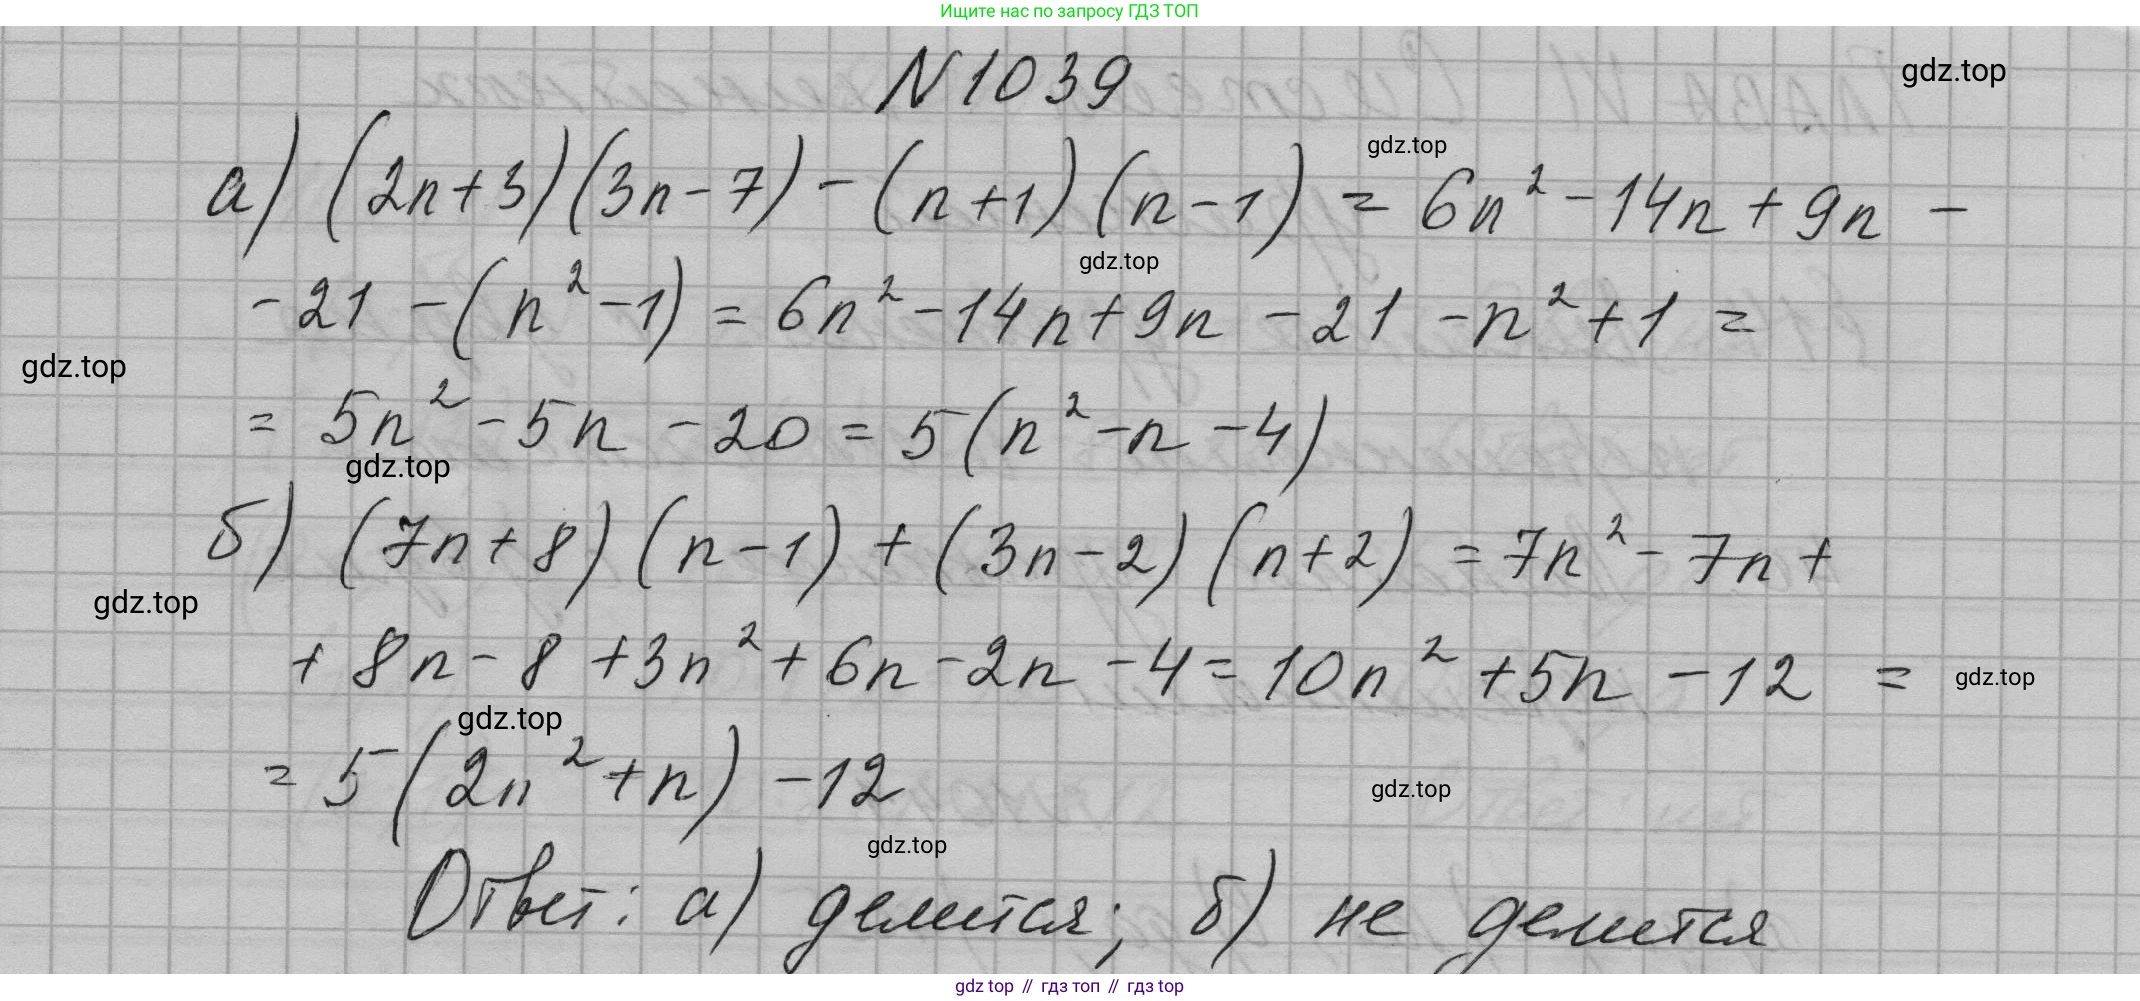 Ищите нас по запросу ГДЗ ТОП
N 1039
gdz.top
а) (2n+3)(3n-7)-(n+1)(n-1) = 6n² - 14n + 9n -
gdz.top
- 21 - (n² - 1) = 6n² - 14n + 9n - 21 - n² + 1 =
gdz.top
gdz.top
= 5n² - 5n - 20 = 5(n² - n - 4)
gdz.top
б) (7n+8)(n-1)+(3n-2)(n+2) = 7n² - 7n +
gdz.top
+ 8n - 8 + 3n² + 6n - 2n - 4 = 10n² + 5n - 12 =
gdz.top
gdz.top
= 5(2n² + n) - 12
gdz.top
gdz.top
Ответ: а) делится; б) не делится
gdz top // гдз топ // гдз top